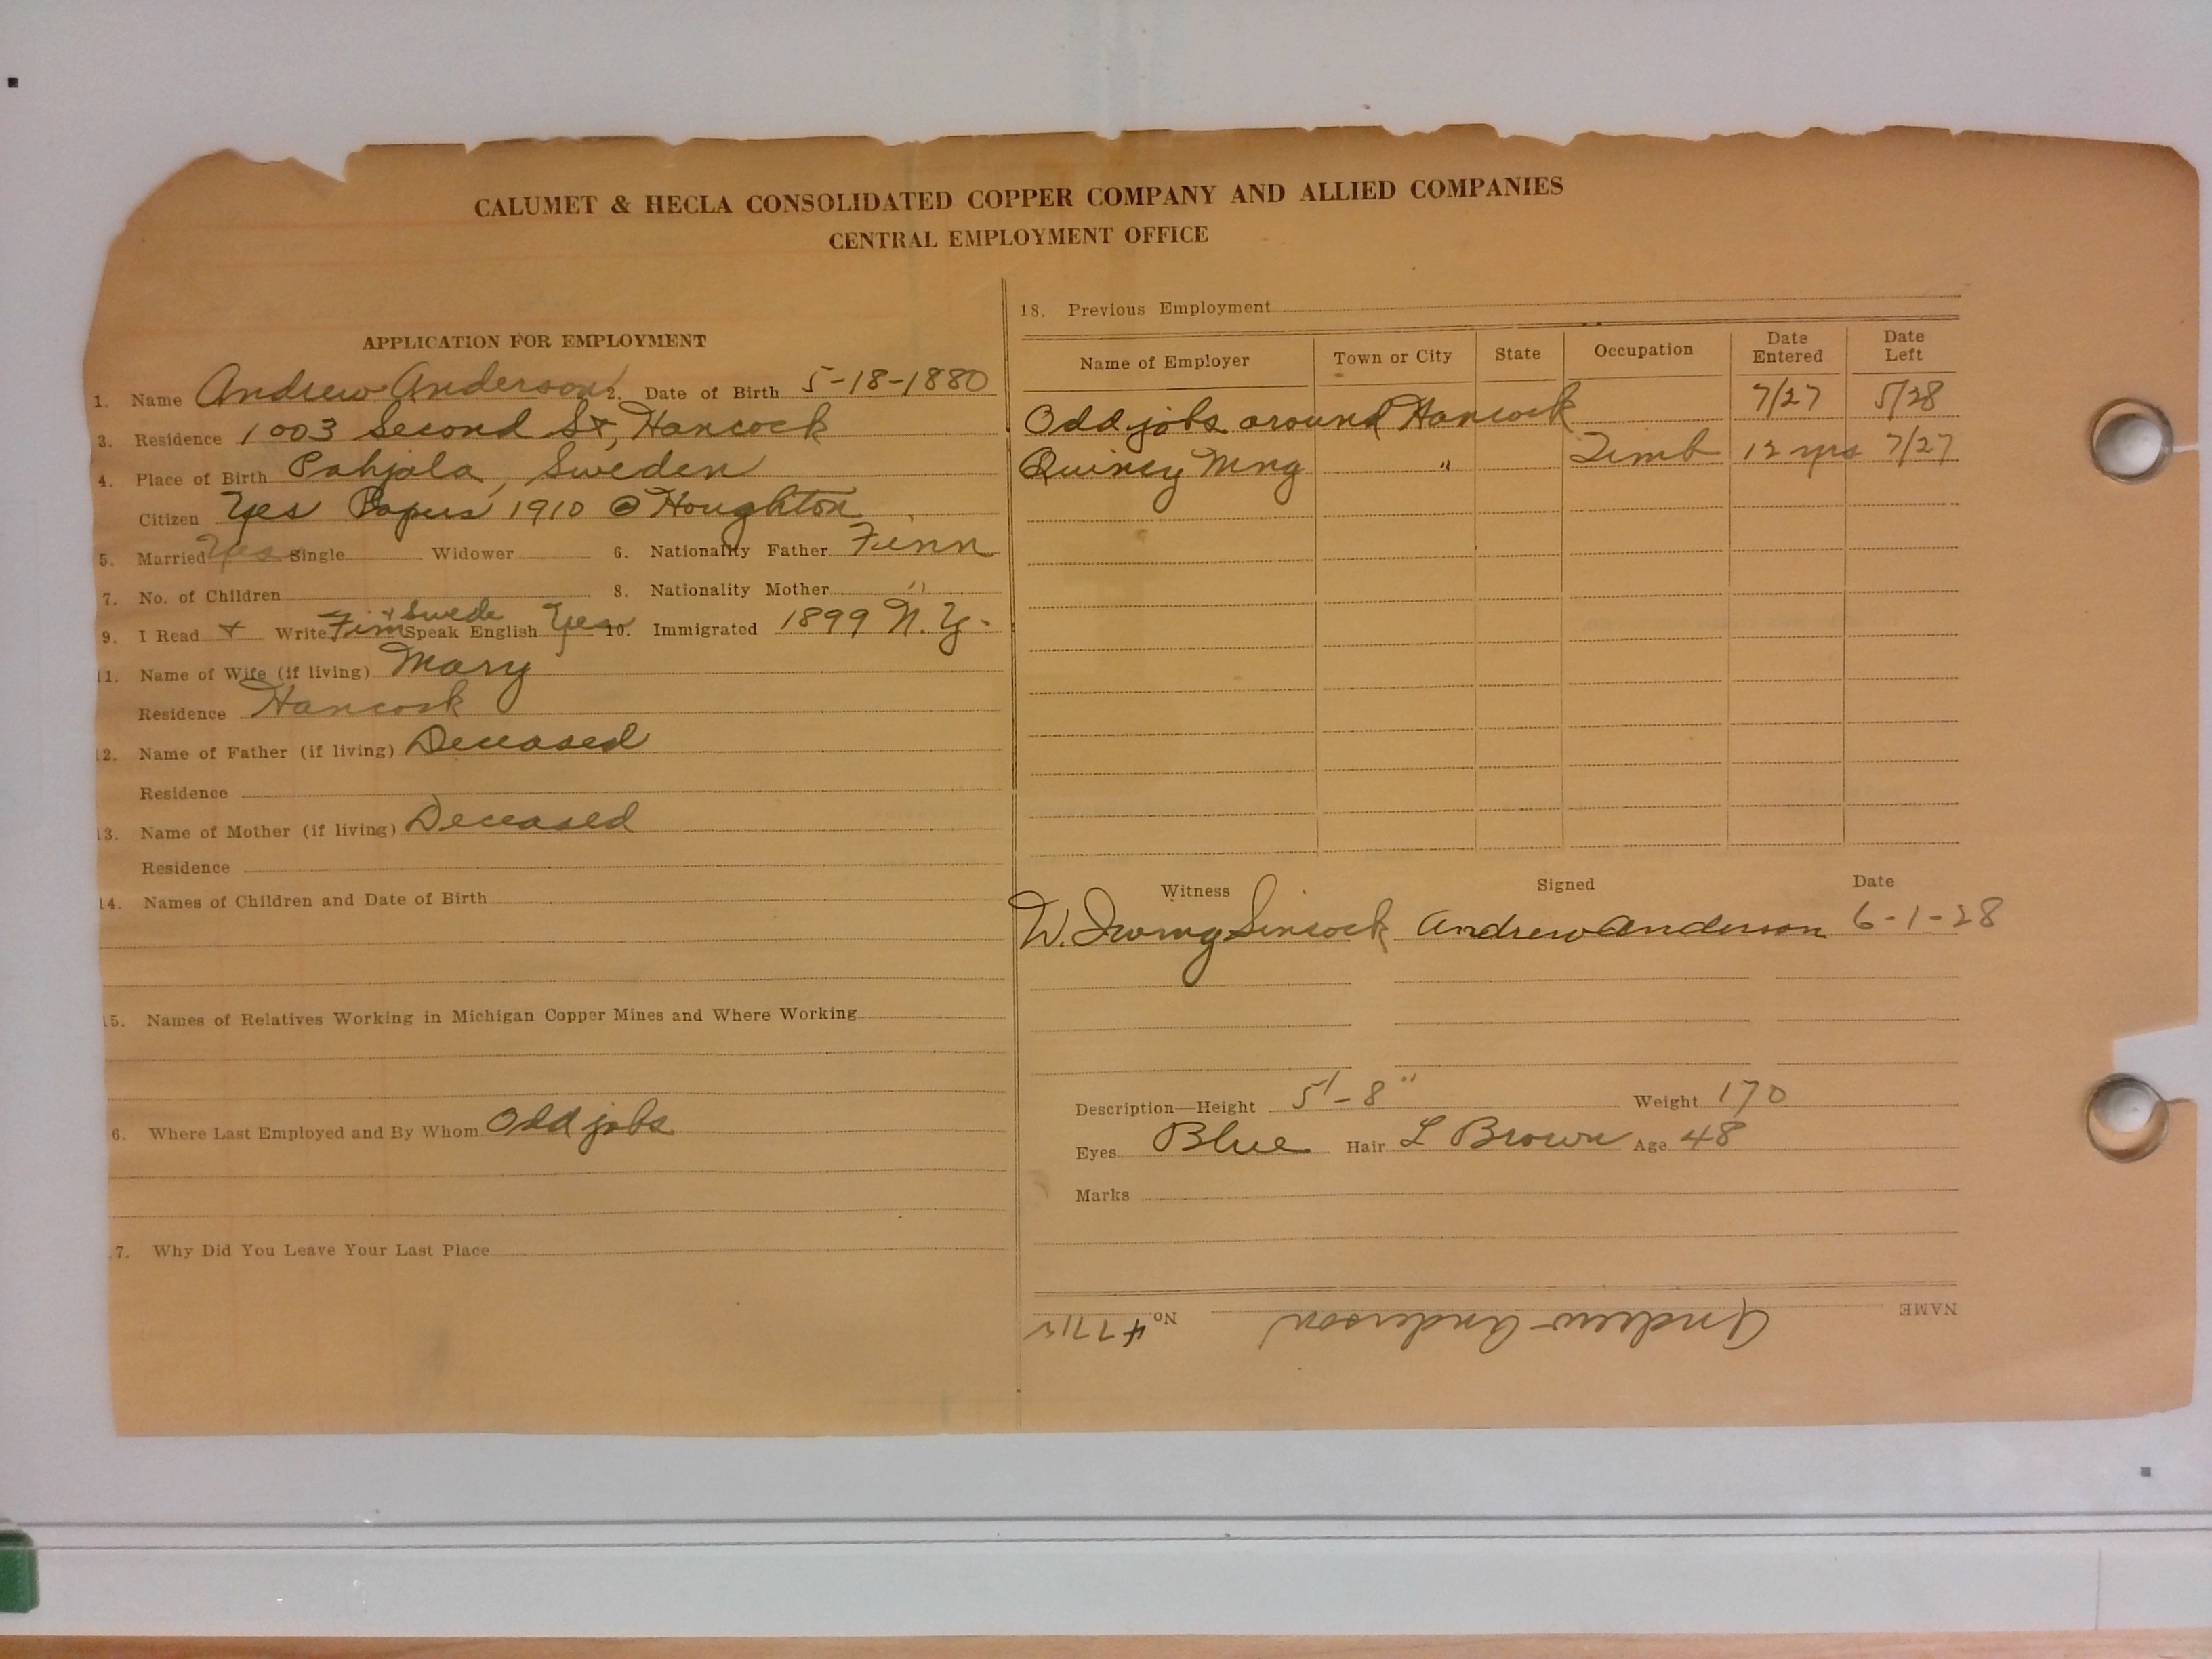 CALUMET & HECLA CONSOLIDATED COPPER COMPANY AND ALLIED COMPANIES
CENTRAL EMPLOYMENT OFFICE
APPLICATION FOR EMPLOYMENT
1. Name Andrew Anderson 2. Date of Birth 5-18-1880
3. Residence 1003 Second St, Hancock
4. Place of Birth Pahjala, Sweden
Citizen Yes Papers 1910 @ Houghton
5. Married Yes Single Widower 6. Nationality Father Finn
7. No. of Children 8. Nationality Mother "
9. I Read + Write Finn + Swede Speak English Yes 10. Immigrated 1899 N.Y.
11. Name of Wife (if living) Mary
Residence Hancock
12. Name of Father (if living) Deceased
Residence
13. Name of Mother (if living) Deceased
Residence
14. Names of Children and Date of Birth
15. Names of Relatives Working in Michigan Copper Mines and Where Working
6. Where Last Employed and By Whom Odd jobs
7. Why Did You Leave Your Last Place
18. Previous Employment
Name of Employer Town or City State Occupation Date Entered Date Left
Odd jobs around Hancock 7/27 5/28
Quincy Mng " Timb 12 yrs 7/27
Witness Signed Date
W. Irving Sincock Andrew Anderson 6-1-28
Description—Height 5'-8" Weight 170
Eyes Blue Hair L Brown Age 48
Marks
NAME Andrew Anderson No.